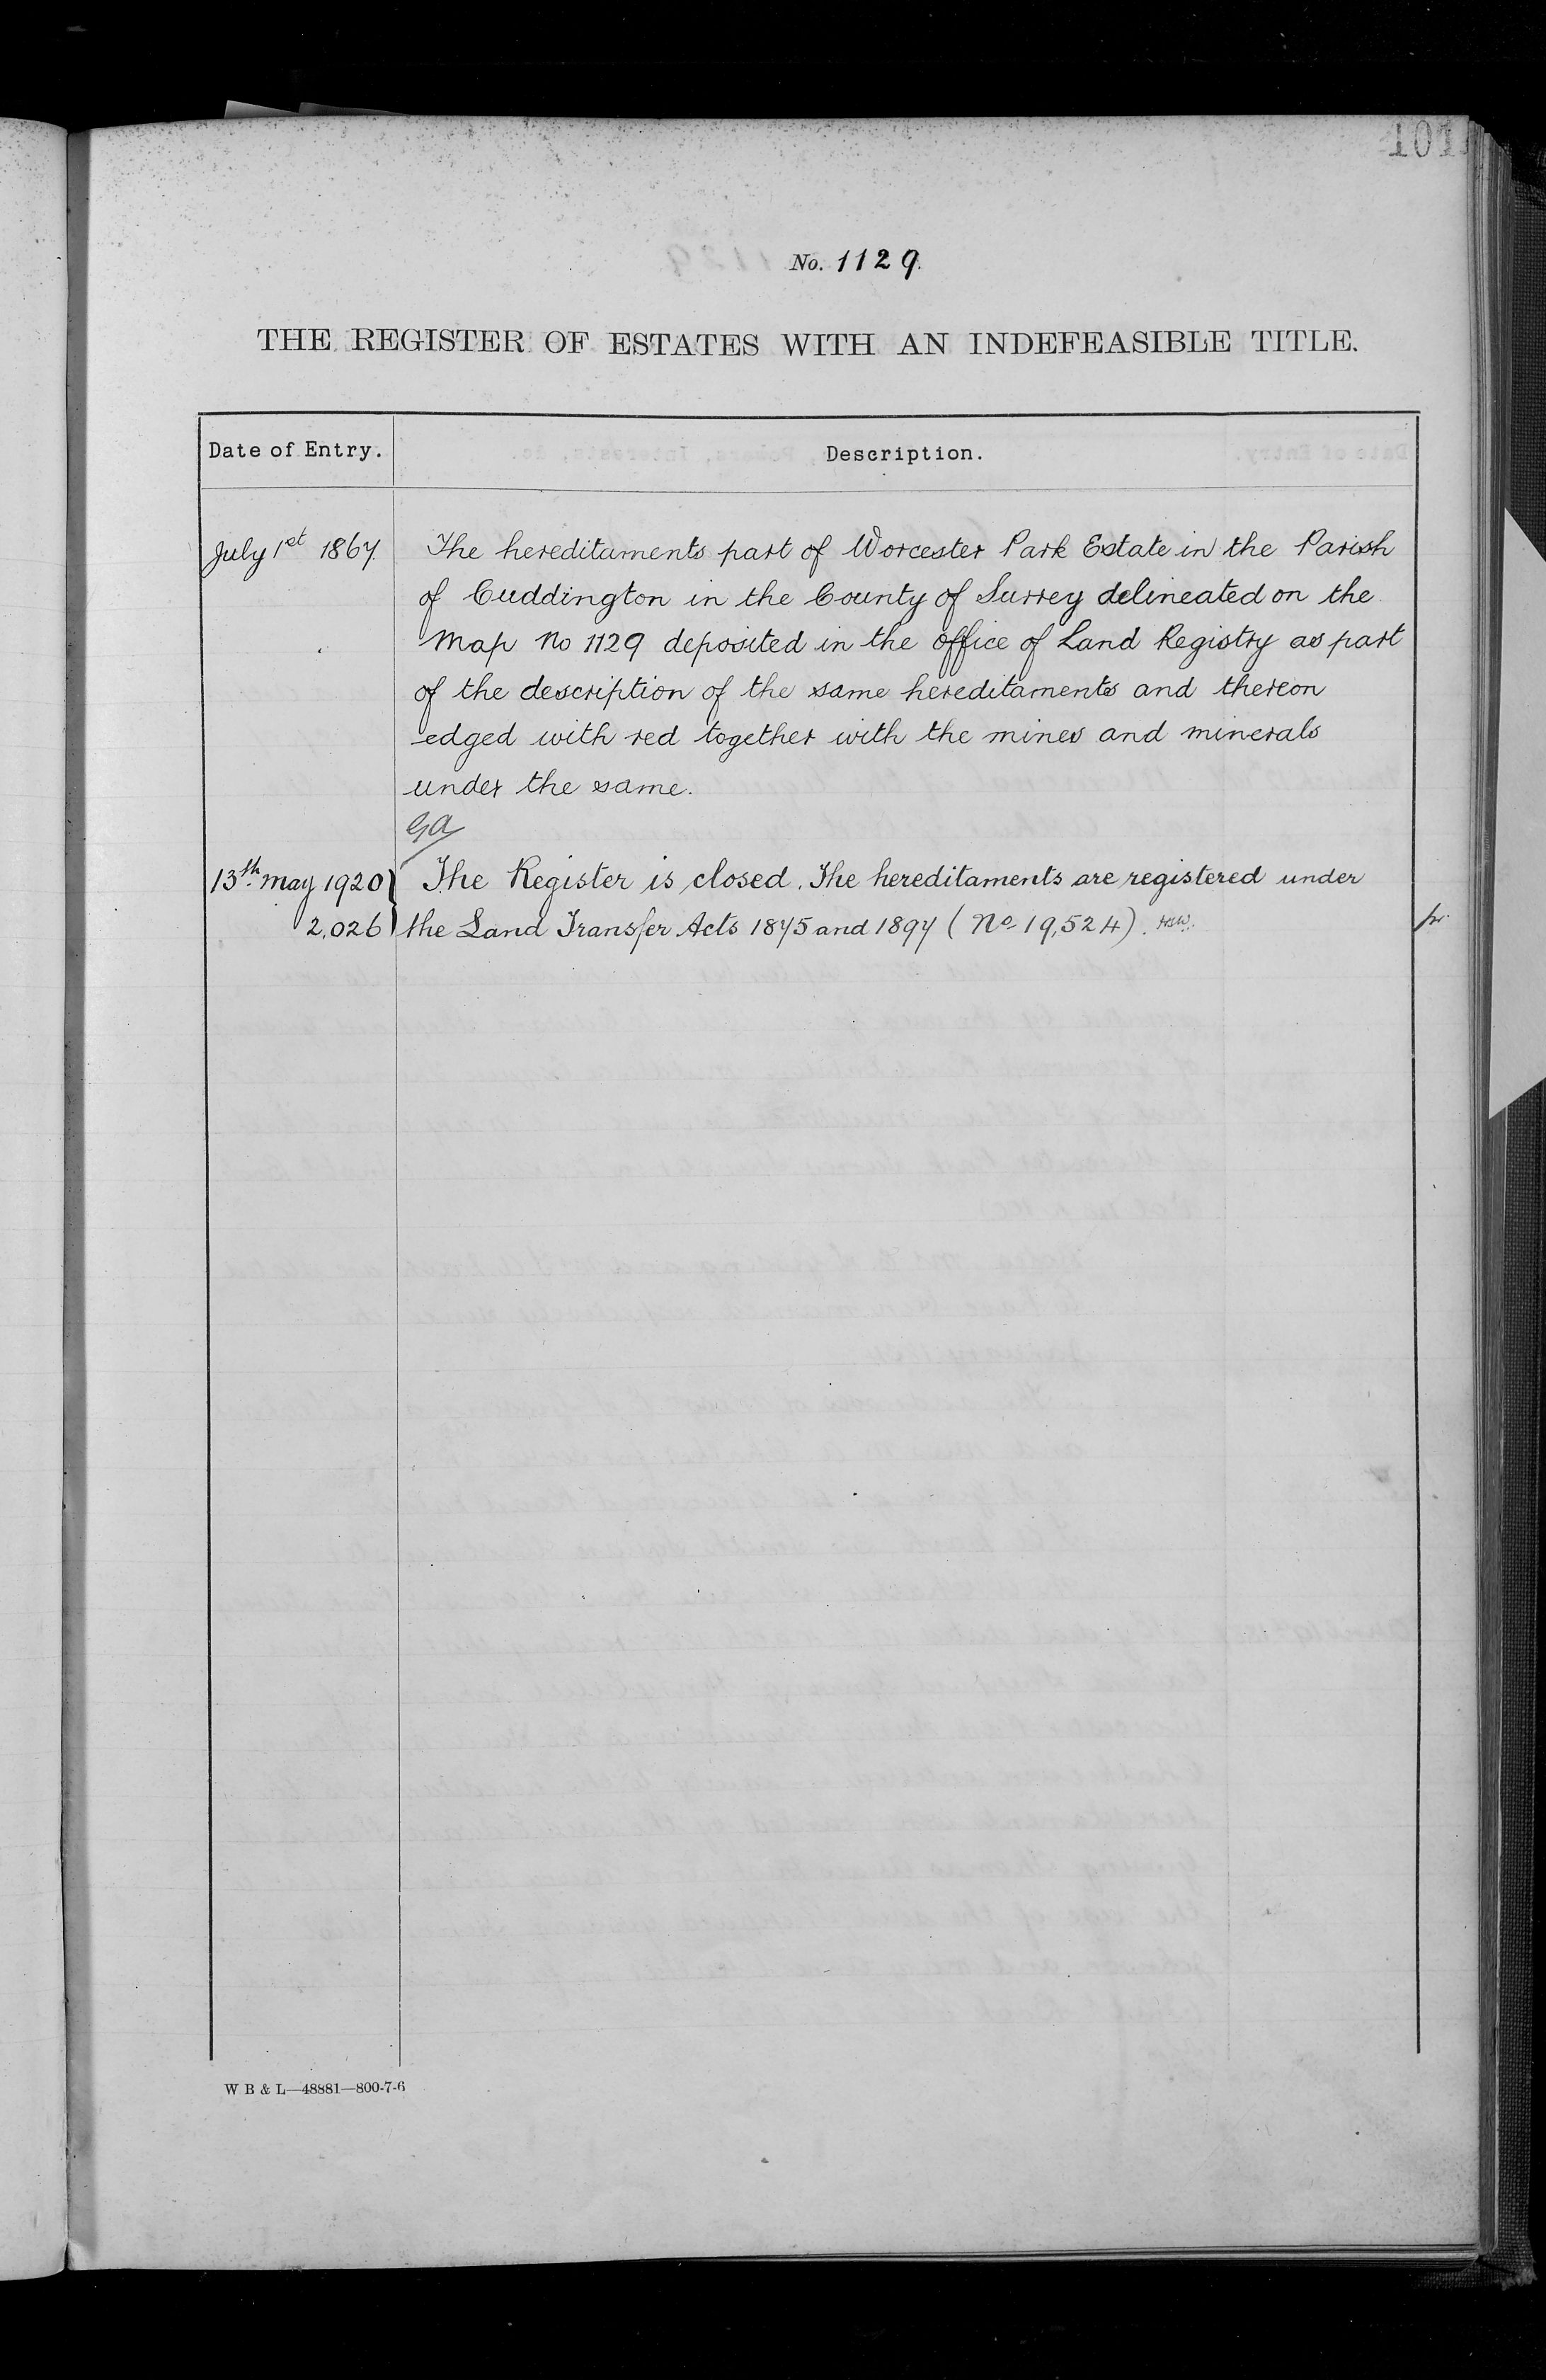 101
No. 1129.
THE REGISTER OF ESTATES WITH AN INDEFEASIBLE TITLE.
Date of Entry.
Description.
July 1st 1867.
The hereditaments part of Worcester Park Estate in the Parish
of Cuddington in the County of Surrey delineated on the
Map No 1129 deposited in the office of Land Registry as part
of the description of the same hereditaments and thereon
edged with red together with the mines and minerals
under the same.
GA
13th May 1920
2,026
The Register is closed. The hereditaments are registered under
the Land Transfer Acts 1875 and 1897 (No 19,524).
W B & L—48881—800-7-6